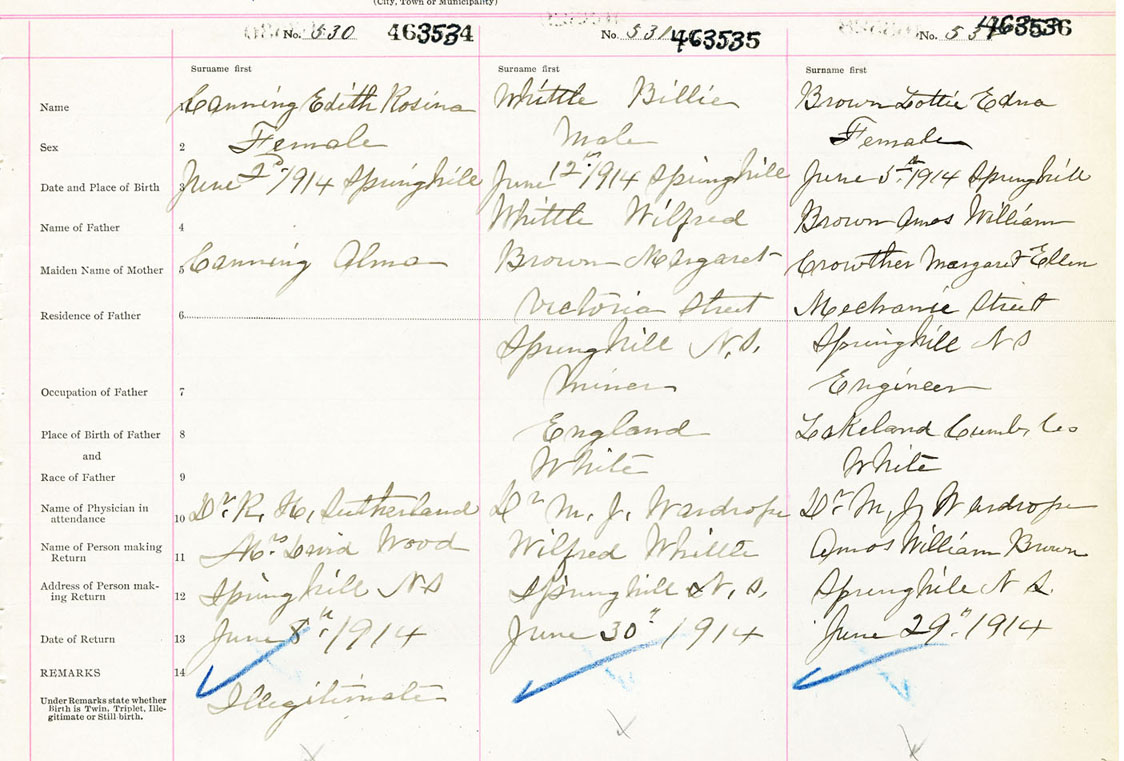 (City, Town or Municipality)
No. 530 463534
No. 531 463535
No. 53 463536
Surname first Surname first Surname first
Name 1 Canning Edith Rosina Whittle Billie Brown Lottie Edna
Sex 2 Female Male Female
Date and Place of Birth 3 June 2d/1914 Springhill June 12th/1914 Springhill June 5th/1914 Springhill
Name of Father 4 Whittle Wilfred Brown Amos William
Maiden Name of Mother 5 Canning Alma Brown Margaret Crowther Margaret Ellen
Residence of Father 6 Victoria Street Mechanic Street
Springhill N.S. Springhill N S
Occupation of Father 7 Miner Engineer
Place of Birth of Father 8 England Lakeland Cumb. Co
and
Race of Father 9 White White
Name of Physician in
attendance 10 Dr R. H. Sutherland Dr M. J. Wardrope Dr M. J. Wardrope
Name of Person making
Return 11 Mrs David Wood Wilfred Whittle Amos William Brown
Address of Person mak-
ing Return 12 Springhill N S Springhill N. S. Springhill N S.
Date of Return 13 June 8th/1914 June 30th/1914 June 29th/1914
REMARKS 14
Under Remarks state whether
Birth is Twin, Triplet, Ille-
gitimate or Still birth.
Illegitimate